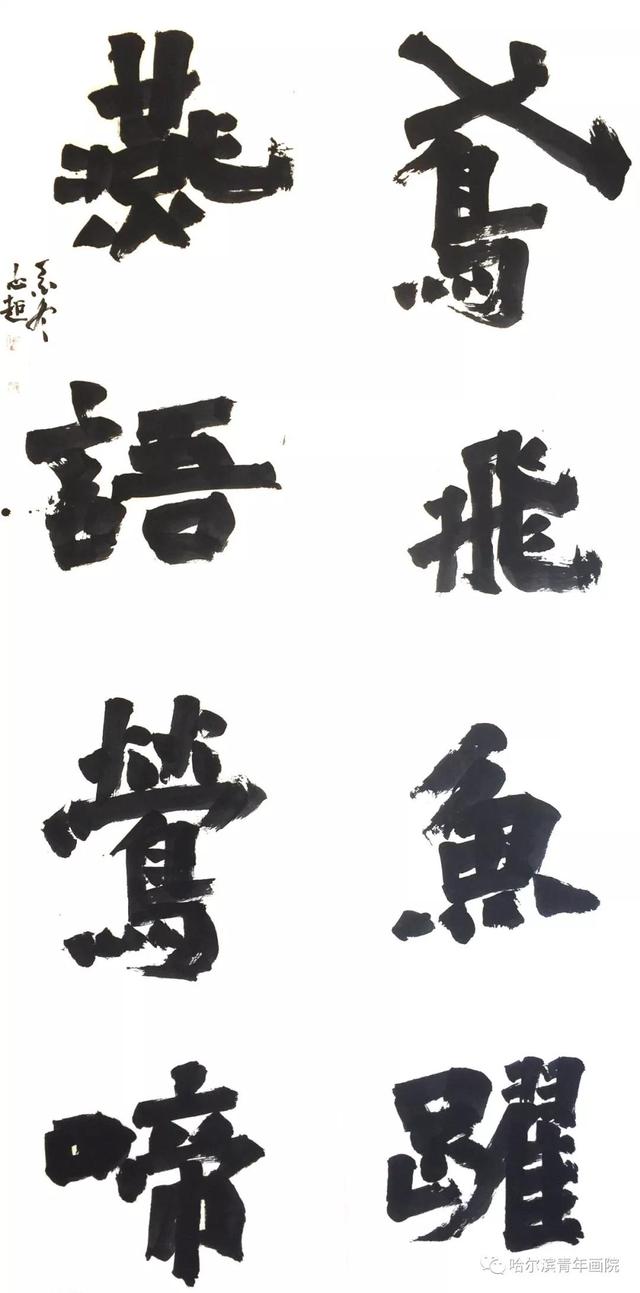 鳶飛魚躍
燕語鶯啼
哈尔滨青年画院